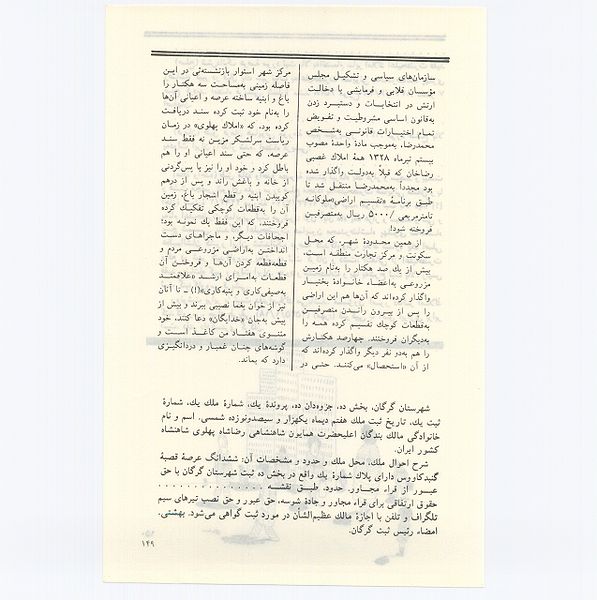 سازمان‌های سیاسی و تشکیل مجلس
مؤسسان قلابی و فرمایشی با دخالت
ارتش در انتخابات و دستبرد زدن
به‌قانون اساسی مشروطیت و تفویض
تمام اختیارات قانونی به‌شخص
محمدرضا، به‌موجب مادهٔ واحدهٔ مصوب
بیستم تیرماه ۱۳۲۸ همهٔ املاك غصبی
رضاخان که قبلاً به‌دولت واگذار شده
بود مجدداً به‌محمدرضا منتقل شد تا
طبق برنامهٔ «تقسیم اراضی» ملوکانه
تامترمربعی /۵۰۰۰ ریال به‌متصرفین
فروخته شود!
از همین محدودهٔ شهر، که محل
سکونت و مرکز تجارت منطقه است،
بیش از یك صد هکتار را به‌نام زمین
مزروعی به‌اعضاء خانوادهٔ بختیار
واگذار کرده‌اند که آن‌ها هم این اراضی
را پس از بیرون راندن متصرفین
به‌قطعات کوچك تقسیم کرده همه را
به‌دیگران فروختند. چهارصد هکتارش
را هم به‌دو نفر دیگر واگذار کرده‌اند که
از آن «استحصال» می‌کنند. حتی در
مرکز شهر استوار بازنشسته‌ئی در این
فاصله زمینی به‌مساحت سه هکتار را
باغ و ابنیه ساخته عرصه و اعیانی آن‌ها
را به‌نام خود ثبت کرده سند دریافت
کرده بود، که «املاك پهلوی» در زمان
ریاست سرلشکر مزین نه فقط سند
عرصه، که حتی سند اعیانی او را هم
باطل کرد و خود او را نیز با پس‌گردنی
از خانه و باغش راند و پس از درهم
کوبیدن ابنیه و قطع اشجار باغ، زمین
آن را به‌قطعات کوچکی تفکیك کرده
فروختند، که این فقط یك نمونه بود؛
اجحافات دیگر، و ماجراهای دست
انداختن به‌اراضی مزروعی مردم و
قطعه‌قطعه کردن آن‌ها و فروختن آن
قطعات به‌امرای ارشد «علاقمند
به‌صیفی‌کاری و پنبه‌کاری»(!) ـ تا آنان
نیز از خوان یغما نصیبی ببرند و بیش از
پیش به‌جان «خدایگان» دعا کنند، خود
مثنوی هفتاد من کاغذ است و
گوشه‌های چنان غمبار و دردانگیزی
دارد که بماند.
شهرستان گرگان، بخش ده، جزوه‌دان ده، پروندهٔ یك، شمارهٔ ملك یك، شمارهٔ
ثبت یك، تاریخ ثبت ملك هفتم دیماه یکهزار و سیصدونوزده شمسی، اسم و نام
خانوادگی مالك بندگان اعلیحضرت همایون شاهنشاهی رضاشاه پهلوی شاهنشاه
کشور ایران.
شرح احوال ملك، محل ملك و حدود و مشخصات آن: ششدانگ عرصهٔ قصبهٔ
گنبدکاووس دارای پلاك شمارهٔ یك واقع در بخش ده ثبت شهرستان گرگان با حق
عبور از قراء مجاور. حدود. طبق نقشه . . . . . . . . . . . . . . .
حقوق ارتفاقی برای قراء مجاور و جادهٔ شوسه، حق عبور و حق نصب تیرهای سیم
تلگراف و تلفن با اجازهٔ مالك عظیم‌الشأن در مورد ثبت گواهی می‌شود. بهشتی.
امضاء رئیس ثبت گرگان.
۱۴۹